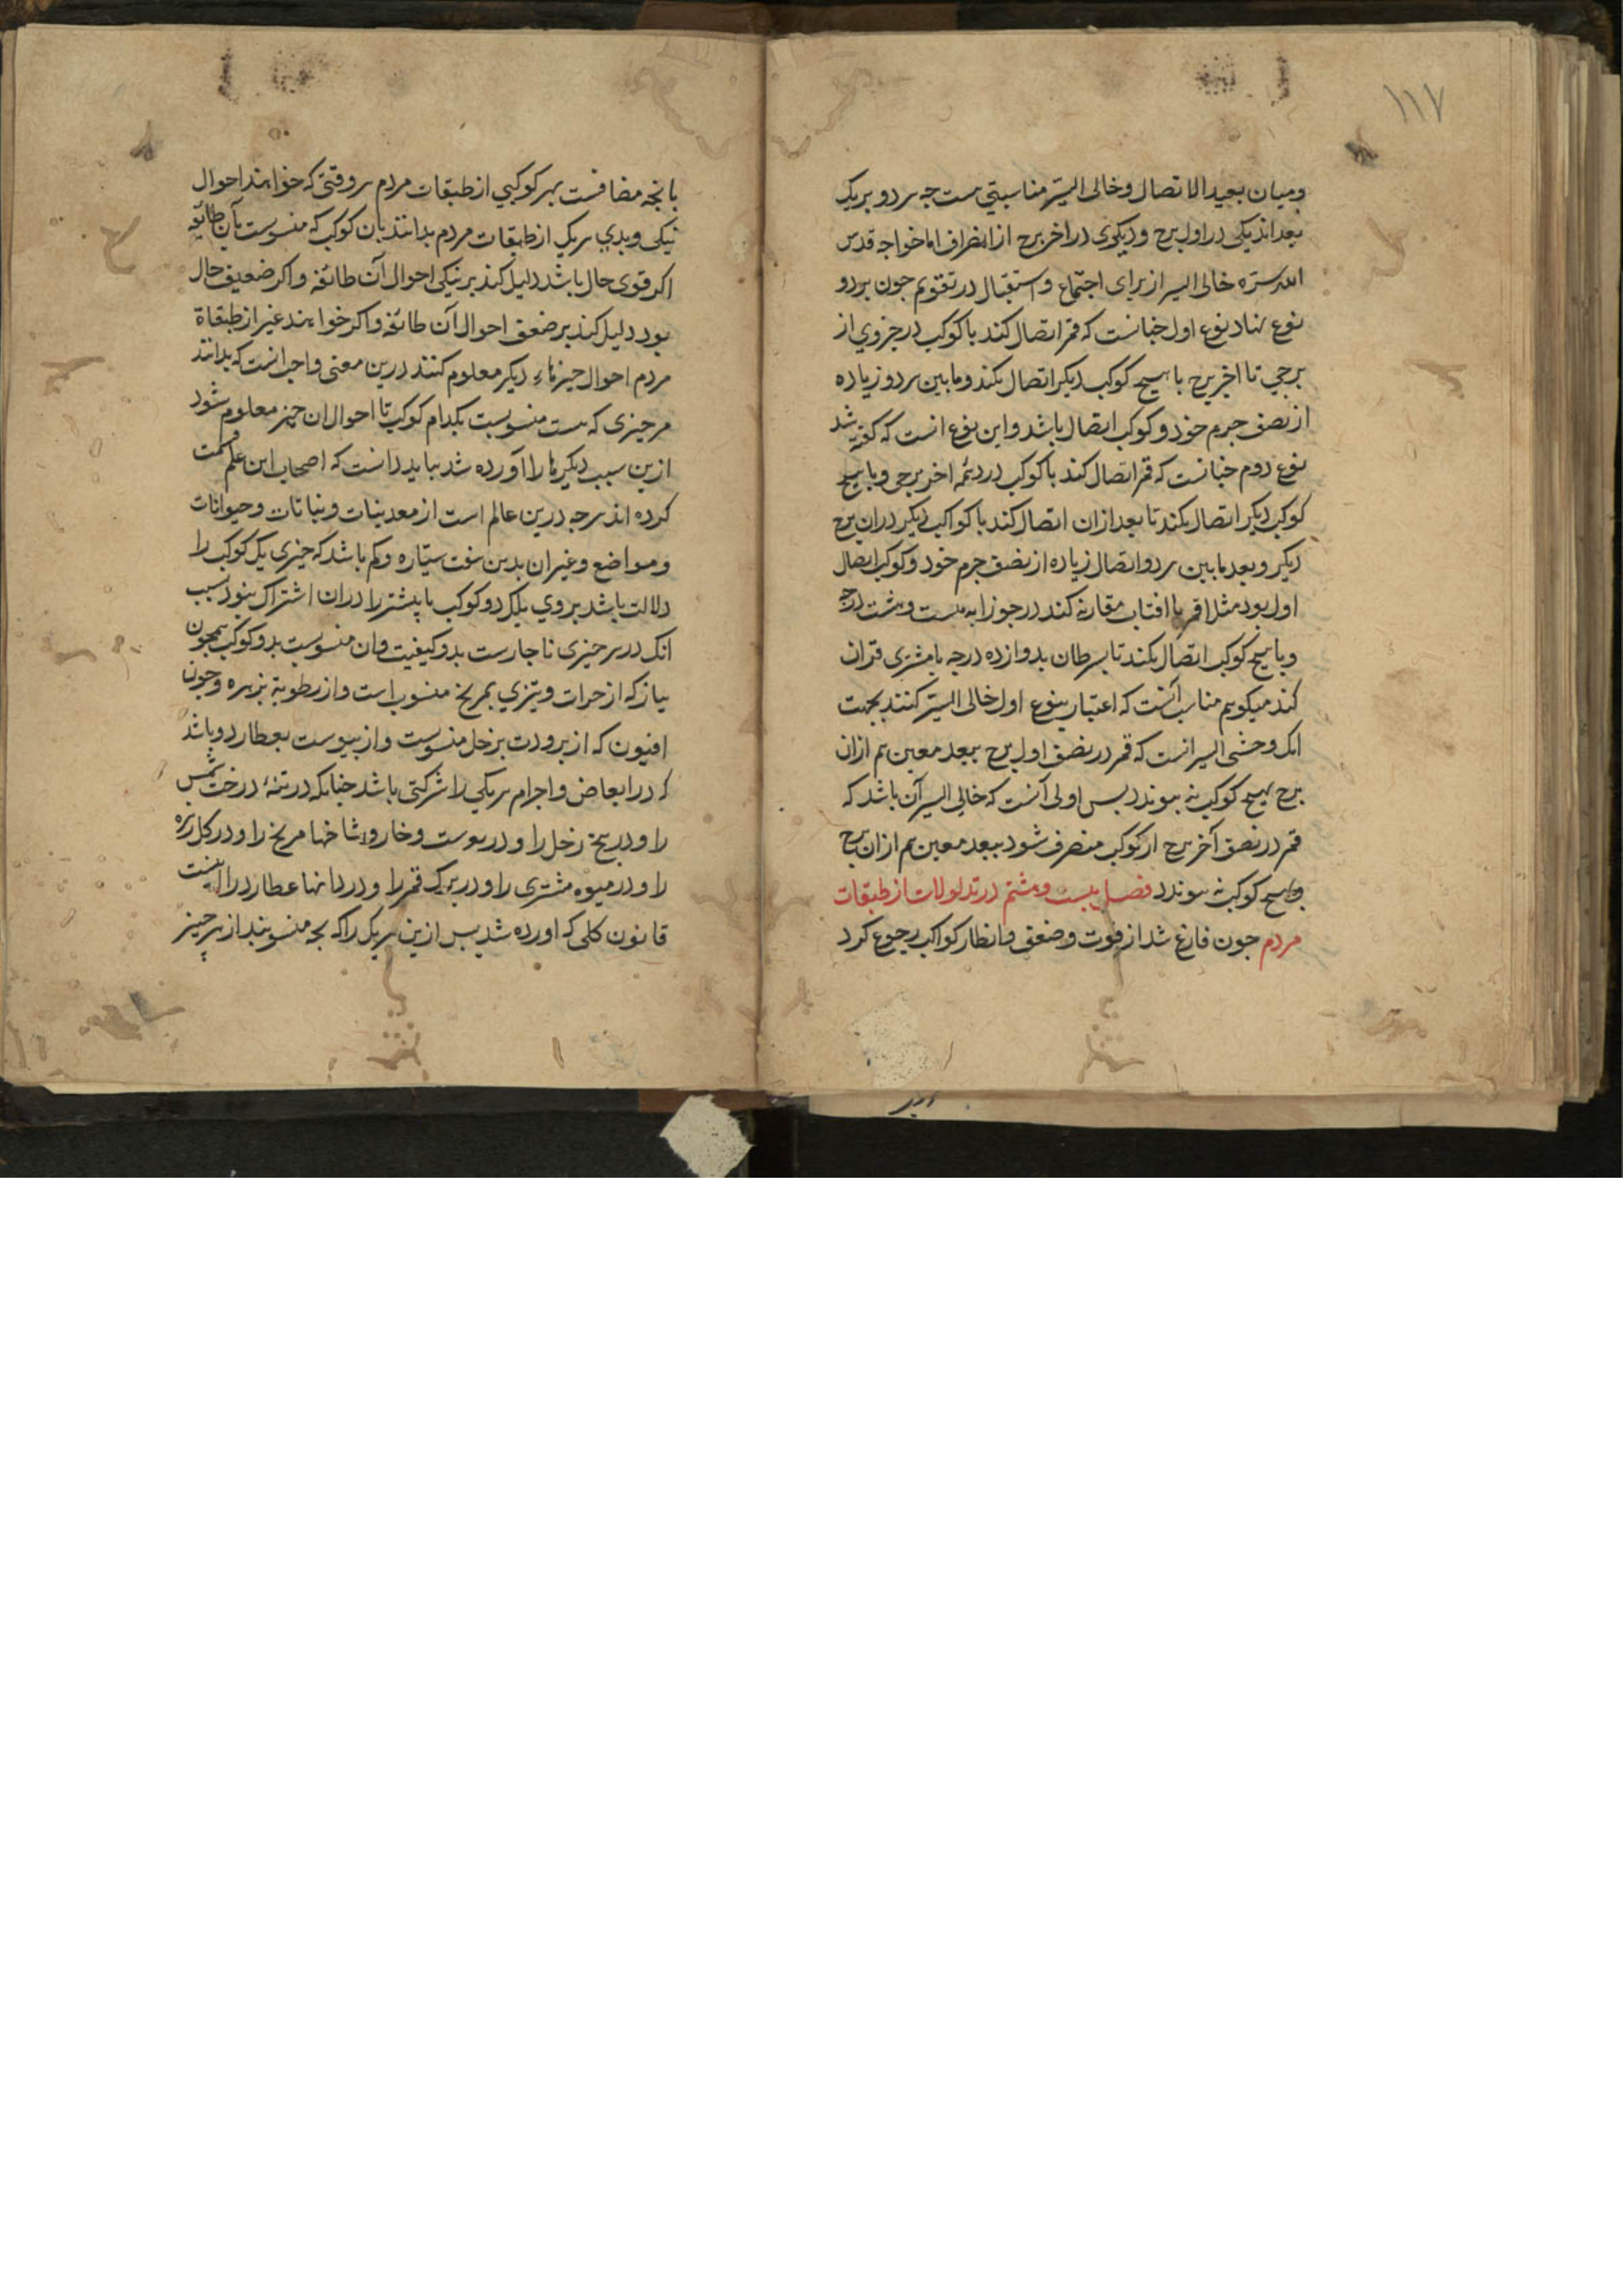 ۱۱۷
ومیان بعید الاتصال وخالی السیر مناسبتی هست جه هر دو بریک
بعد اند یکی در اول برج ودیکری در اخر برج از انصراف اما خواجه قدس
الله سره خالی السیر از برای اجتماع واستقبال در تقویم جون بر دو
نوع نهاد نوع اول جنانست که قمر اتصال کند با کوکب در جزوی از
برجی تا اخر برج با هیچ کوکب دیکر اتصال نکند وما بین هر دو زیاده
از نصف جرم خود و کوکب اتصال باشد واین نوع انست که کفته شد
نوع دوم جنانست که قمر اتصال کند با کوکب در تتمه اخر برجی وبا هیچ
کوکب دیکر اتصال نکند تا بعد از ان اتصال کند با کواکب دیکر در ان برج
دیکر وبعد ما بین هر دو اتصال زیاده از نصف جرم خود وکوکب اتصال
اول بود مثلا قمر با افتاب مقارنه کند در جوزا به بیست وهشت درجه
وبا هیچ کوکب اتصال نکند تا بسرطان بدوازده درجه با مشتری قران
کند میکویم مناسب آنست که اعتبار بنوع اول خالی السیر کنند بجهت
انک وحشی السیر انست که قمر در نصف اول برج ببعد معین هم از ان
برج بهیچ کوکب نه بیوندد بس اولی آنست که خالی السیر آن باشد که
قمر در نصف آخر برج از کوکب منصرف شود ببعد معین هم از ان برج
وبهیچ کوکب نه بیوندد فصل بیست وهشتم در مدلولات از طبقات
مردم جون فارغ شد از قوت وضعف وانظار کواکب رجوع کرد
بانجه مضافست بهر کوکبی از طبقات مردم هر وقتی که خواهند احوال
نیکی وبدی هر یک از طبقات مردم بدانند بان کوکب که منسوبست بآن طائفه
اکر قوی حال باشد دلیل کند بر نیکی احوال آن طائفه واکر ضعیف حال
بود دلیل کند بر ضعف احوال آن طائفه واکر خواهند غیر از طبقاة
مردم احوال جیزهاء دیکر معلوم کنند درین معنی واجب انست که بدانند
هر جیزی که هست منسوبست بکدام کوکب تا احوال ان چیز معلوم شود
ازین سبب دیکرها را آورده شد بباید دانست که اصحاب این علم قسمت
کرده اند هر جه درین عالم است از معدنیات ونباتات وحیوانات
ومواضع وغیر ان بدین هفت ستاره وکم باشد که جیزی یک کوکب را
دلالت باشد بروی بلک دو کوکب یا بیشتر را در ان اشتراک بنود سبب
انک در هر جیزی ناجارست بدو کیفیت وان منسوبست بدو کوکب همجون
بیاز که از حرات وتیزی بمریخ منسوب است واز رطوبة بزهره وجون
افیون که از برودت بزحل منسوبست واز یبوست بعطارد وباشد
که در ابعاض واجرام هر یکی را شرکتی باشد جنانکه در تنهٔ درخت شمس
را ودر بیخ زحل را ودر بوست وخار وشاخها مریخ را ودر کل زهره
را ودر میوه مشتری را ودر برک قمر را ودر دانها عطارد را اینست
قانون کلی که اورده شد بس ازین هر یک را که بجه منسوبند از هر جیز